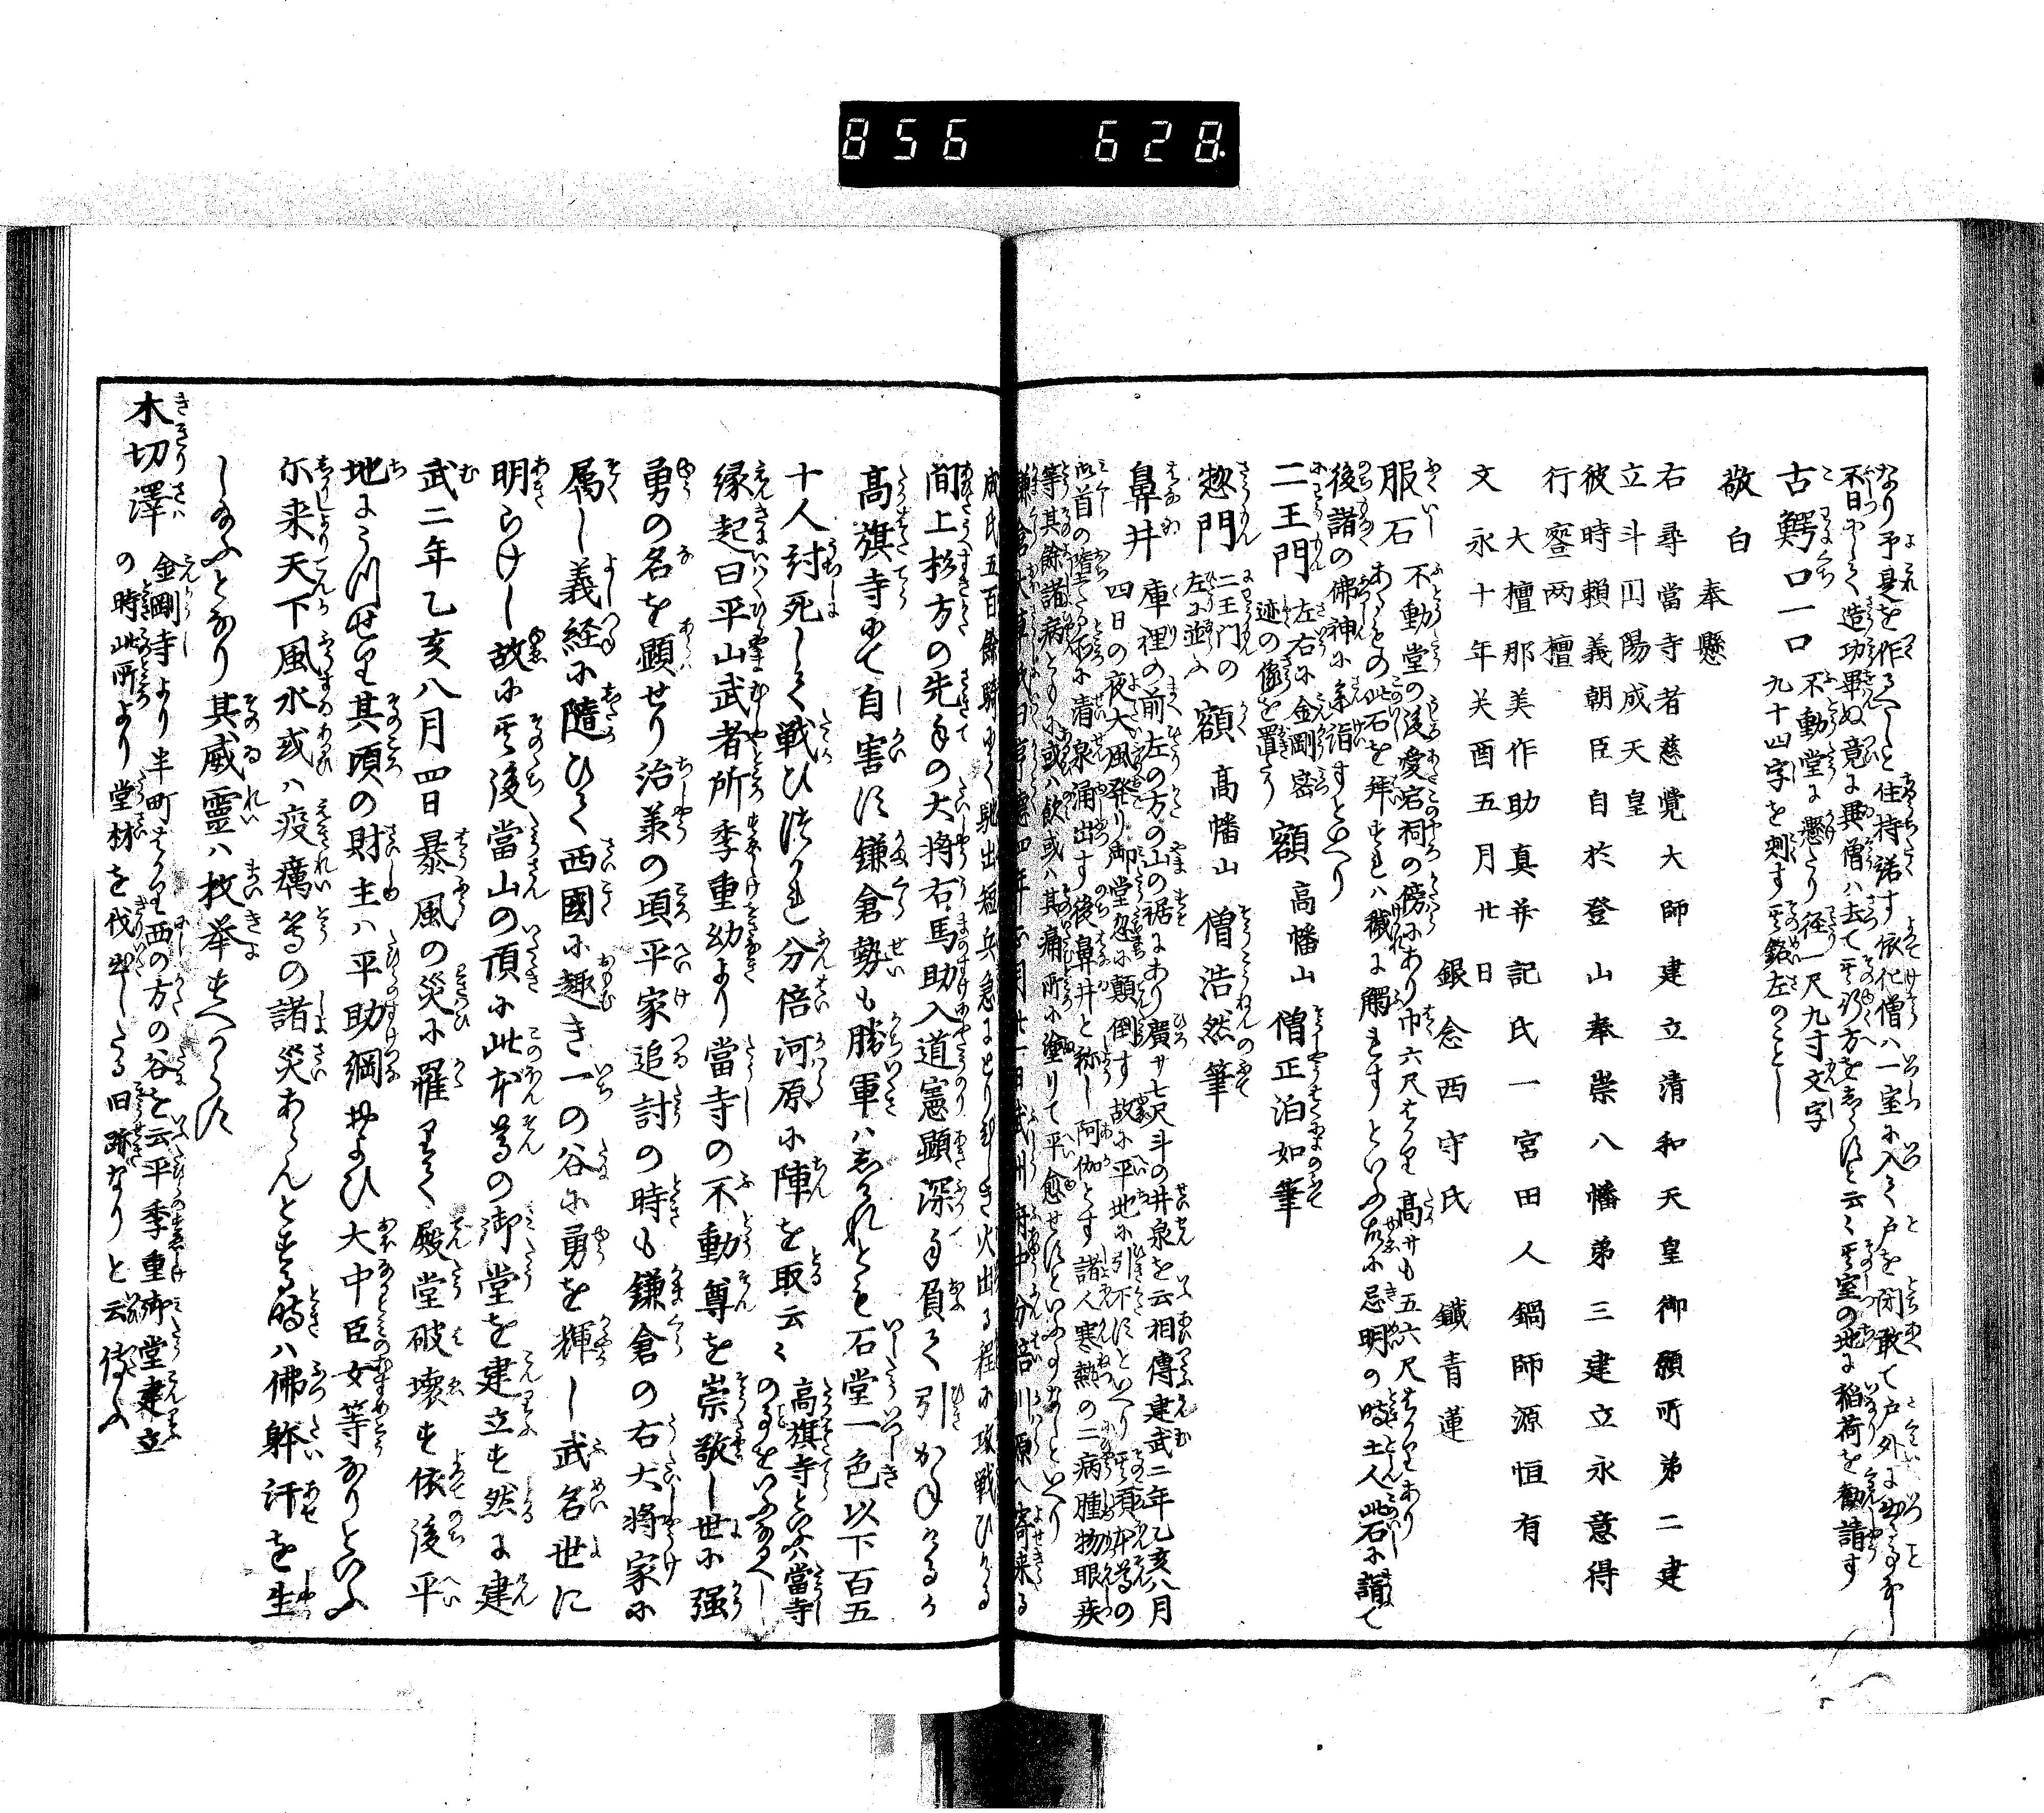 856 628
なり予具を作るへしと住持諾す依化僧ハ一室に入て戸を閉敢て戸外に出る事なし
不日にして造功畢ぬ竟に異僧ハ去て其行方をしらすと云々其室の地に稲荷を勧請す
古鰐口一口
不動堂に懸たり径一尺九寸文字
九十四字を刻す其銘左のことし
敬白
奉懸
右尋當寺者慈覺大師建立清和天皇御願所第二建
立斗円陽成天皇
彼時頼義朝臣自於登山奉崇八幡第三建立永意得
行蜜两檀
大檀那美作助真并記氏一宮田人鍋師源恒有
文永十年关酉五月廿日
銀念西守氏 鐵青蓮
服石
不動堂の後愛宕祠の傍にあり巾六尺はかり高サも五六尺はかりあり
此石を拜すれハ穢に觸れすといふ故に忌明の時土人此石に謂て
後諸の佛神に参詣すといへり
二王門
左右に金剛密
迹の像を置たり
額
高幡山 僧正泊如筆
惣門
二王門の
左に並ふ
額
高幡山 僧浩然筆
鼻井
庫裡の前左の方の山の裾にあり廣サ七尺斗の井泉を云相傳建武二年乙亥八月
四日の夜大風発り御堂忽に顛倒す故に平地に引下すといへり其頃本尊の
御首の落たる所に清泉涌出す後鼻井と称し阿伽とす諸人寒熱の二病腫物眼疾
等其餘諸病ともに或ハ飲或ハ其痛所に塗りて平愈せすといふ事なしといへり
間上杉方の先手の大将右馬助入道憲顕深手負て引かねけるか
高旗寺にて自害す鎌倉勢も勝軍ハしけれとも石堂一色以下百五
十人討死して戦ひ疲れ分倍河原に陣を取云々
高旗寺といふハ當寺
の事をいふなるへし
縁起曰平山武者所季重幼より當寺の不動尊を崇敬し世に强
勇の名を顕せり治承の頃平家追討の時も鎌倉の右大将家に
属し義経に随ひて西國に趣き一の谷に勇を輝し武名世に
明らけし故に其後當山の頂に此本尊の御堂を建立す然に建
武二年乙亥八月四日暴風の災に罹りて殿堂破壊す依後平
地にうつせり其頃の財主ハ平助綱およひ大中臣女等なりといふ
尓来天下風水或ハ疫癘等の諸災あらんとする時ハ佛躰汗を生
しねふとなり其威靈ハ枚挙すへからす
木切澤
金剛寺より半町はかり西の方の谷を云平季重御堂建立
の時此所より堂材を伐出したる旧跡なりと云傳ふ